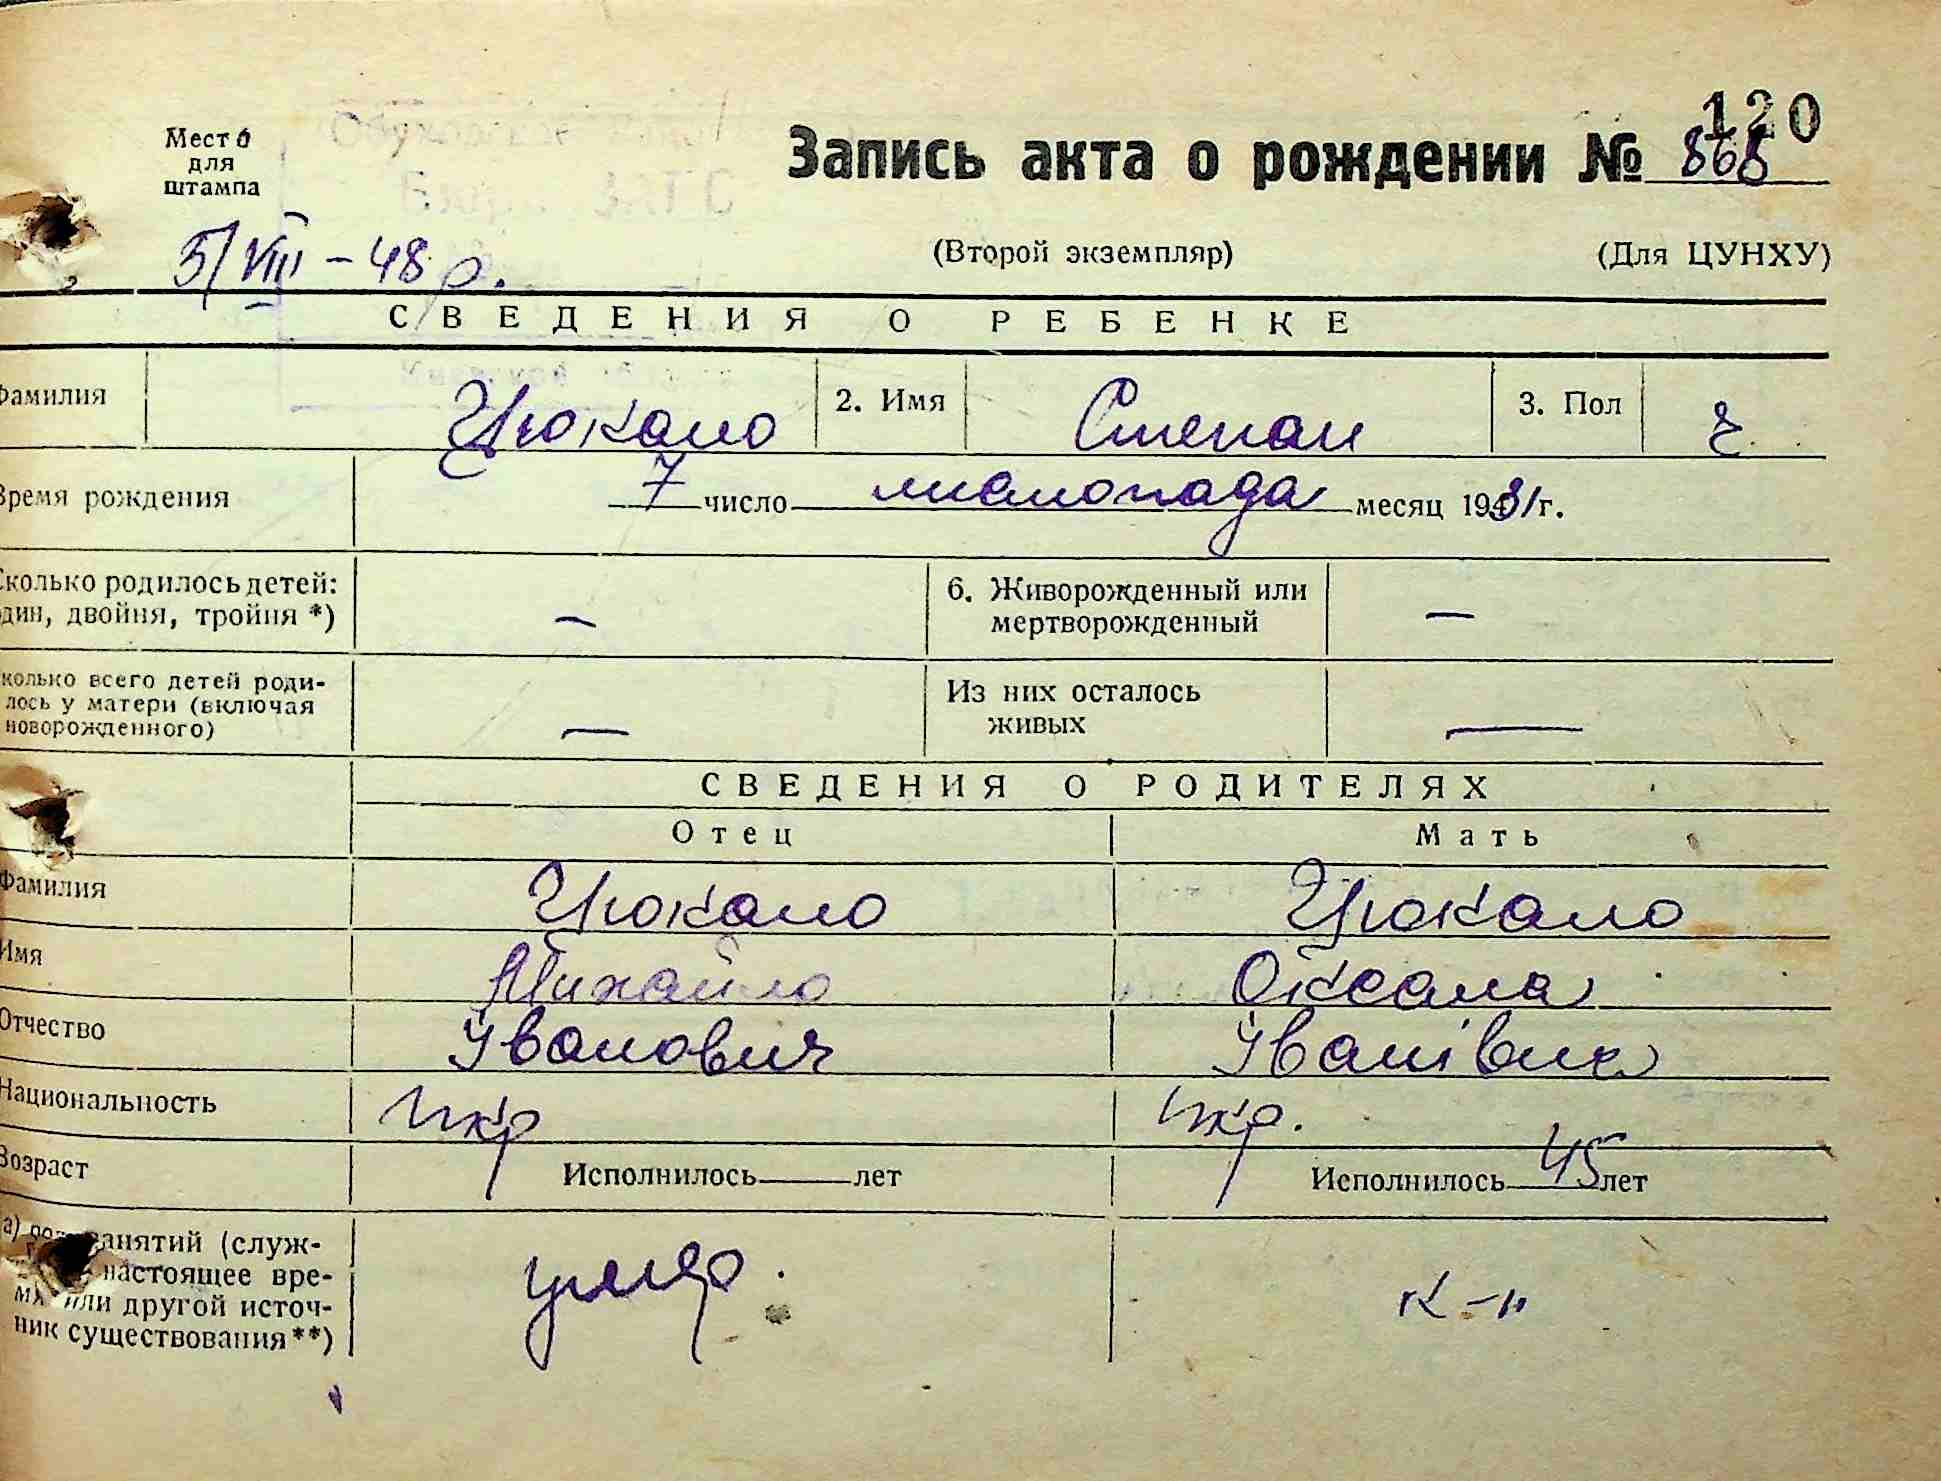 120
Место
для
штампа
Запись акта о рождении № 868
5/VIII – 48 р.
(Второй экземпляр) (Для ЦУНХУ)
СВЕДЕНИЯ О РЕБЕНКЕ
Фамилия Цюкало 2. Имя Степан 3. Пол ч.
Время рождения 7 число листопада месяц 1931 г.
Сколько родилось детей: — 6. Живорожденный или —
один, двойня, тройня *) мертворожденный
колько всего детей роди- — Из них осталось —
лось у матери (включая живых
новорожденного)
СВЕДЕНИЯ О РОДИТЕЛЯХ
Отец Мать
Фамилия Цюкало Цюкало
Имя Михайло Оксана
Отчество Іванович Іванівна
Национальность Укр Укр.
Возраст Исполнилось — лет Исполнилось 45 лет
занятий (служ- умер. к-ц
настоящее вре-
или другой источ-
ник существования **)